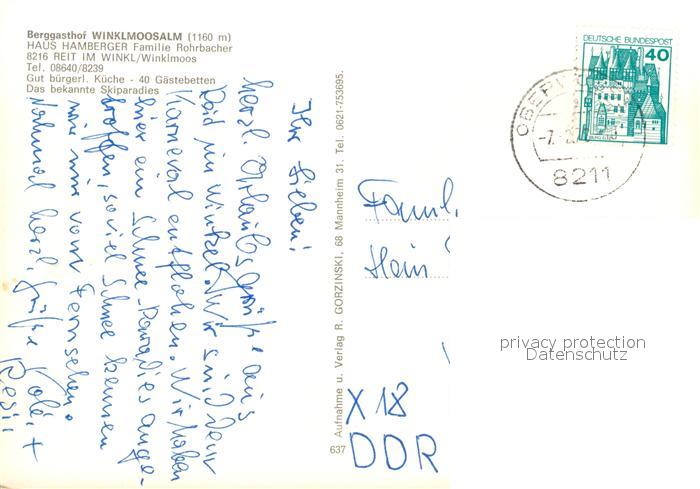 Berggasthof WINKLMOOSALM (1160 m)
HAUS HAMBERGER Familie Rohrbacher
8216 REIT IM WINKL/Winklmoos
Tel. 08640/8239
Gut bürgerl. Küche - 40 Gästebetten
Das bekannte Skiparadies
Ihr Lieben!
herzl. Urlaubsgrüße aus
Reid im Winkel. Wir sind dem
Karneval entflohen. Wir haben
hier ein Schnee-Paradies ange-
troffen, soviel Schnee kennen
wir nur vom Fernsehen.
Nochmal herzl. Grüße
+
Resi
637
Aufnahme u. Verlag R. GORZINSKI, 68 Mannheim 31, Tel. 0621-753695.
DEUTSCHE BUNDESPOST
40
BURG ELTZ
8211
Famil
Hein
X 18
DDR
privacy protection
Datenschutz